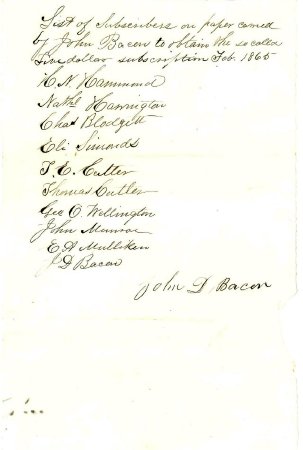 List of Subscribers on paper carried
by John Bacon to obtain the so called
five dollar subscription Feb. 1865
H. N. Hammond
Nathl Harrington
Chas Blodgett
Eli Simonds
T. E. Cutler
Thomas Cutler
Geo O. Wellington
John Munroe
E A Mulliken
J D Bacon
John D. Bacon